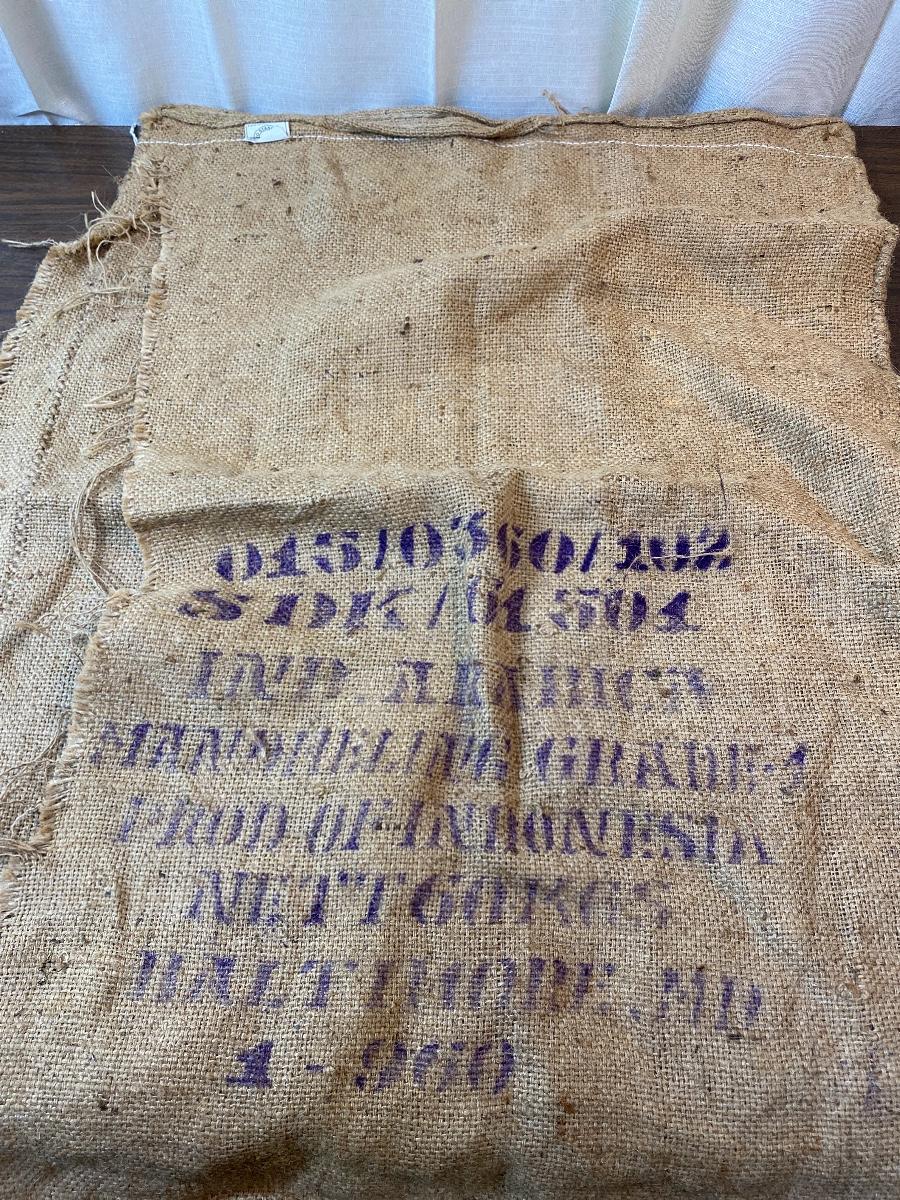 015/0360/102
SDK/51501
IND. ARABICA
MANDHELING GRADE-1
PROD OF INDONESIA
NETT 60 KGS
BALTIMORE, MD
1-960